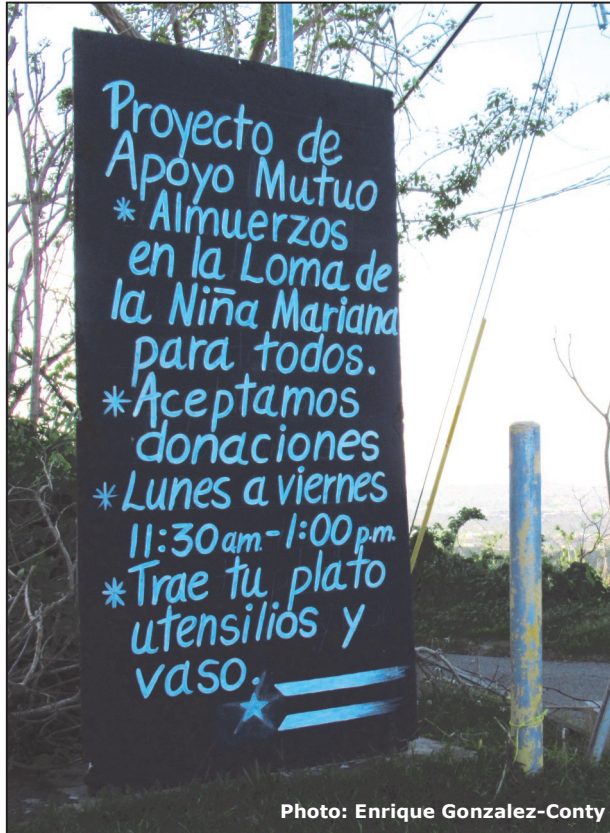 Proyecto de
Apoyo Mutuo
* Almuerzos
en la Loma de
la Niña Mariana
para todos.
* Aceptamos
donaciones
* Lunes a viernes
11:30 am. - 1:00 p.m.
* Trae tu plato
utensilios y
vaso.
Photo: Enrique Gonzalez-Conty